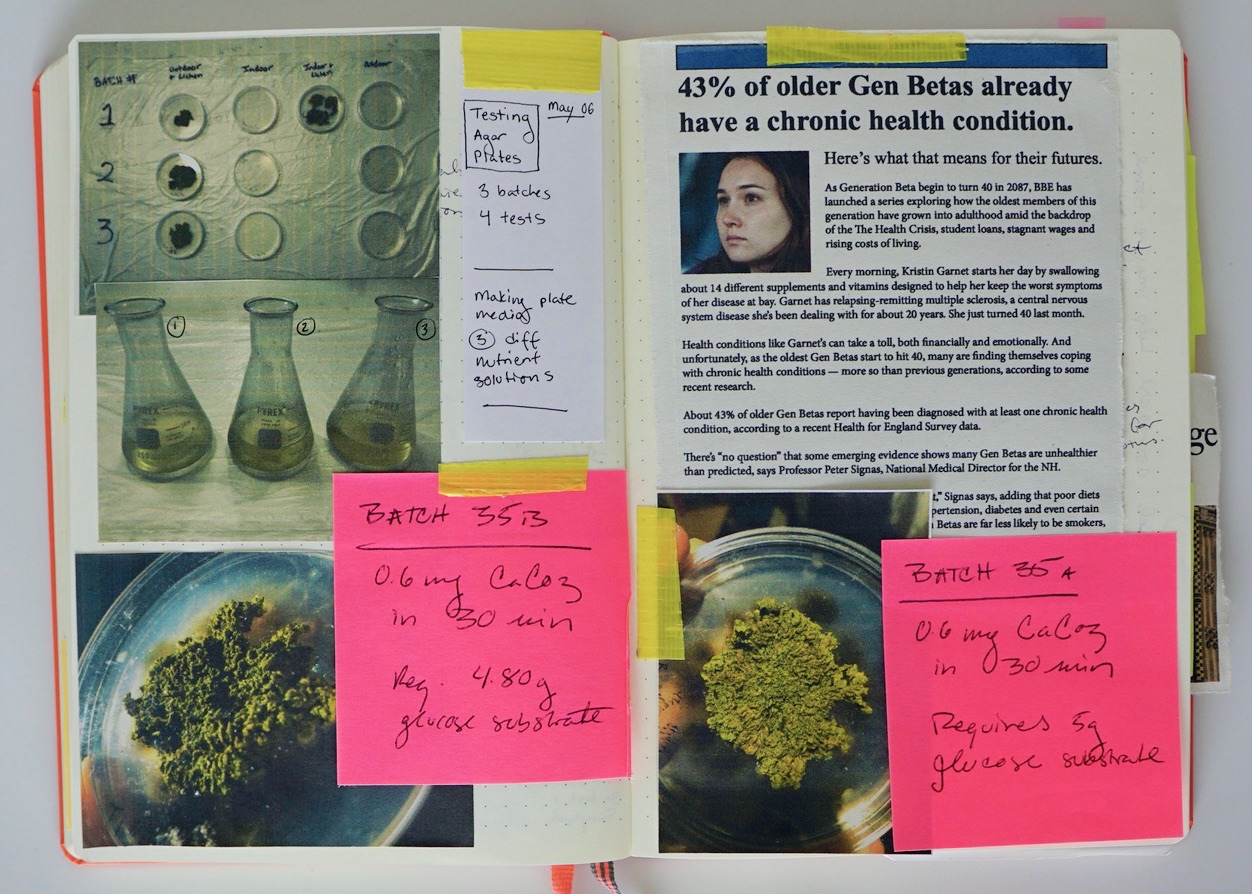 BATCH #
Outdoor
+ Lichen
Indoor
Indoor +
Lichen
Outdoor
1
2
3
1
2
3
PYREX
PYREX
PYREX
May 06
Testing
Agar
Plates
3 batches
4 tests
Making plate
media
3 diff
nutrient
solutions
BATCH 35B
0.6 mg CaCo3
in 30 min
Req. 4.80g
glucose substrate
43% of older Gen Betas already
have a chronic health condition.
Here's what that means for their futures.
As Generation Beta begin to turn 40 in 2087, BBE has
launched a series exploring how the oldest members of this
generation have grown into adulthood amid the backdrop
of the The Health Crisis, student loans, stagnant wages and
rising costs of living.
Every morning, Kristin Garnet starts her day by swallowing
about 14 different supplements and vitamins designed to help her keep the worst symptoms
of her disease at bay. Garnet has relapsing-remitting multiple sclerosis, a central nervous
system disease she's been dealing with for about 20 years. She just turned 40 last month.
Health conditions like Garnet's can take a toll, both financially and emotionally. And
unfortunately, as the oldest Gen Betas start to hit 40, many are finding themselves coping
with chronic health conditions — more so than previous generations, according to some
recent research.
About 43% of older Gen Betas report having been diagnosed with at least one chronic health
condition, according to a recent Health for England Survey data.
There's "no question" that some emerging evidence shows many Gen Betas are unhealthier
than predicted, says Professor Peter Signas, National Medical Director for the NH.
," Signas says, adding that poor diets
pertension, diabetes and even certain
Betas are far less likely to be smokers,
BATCH 35A
0.6 mg CaCo3
in 30 min
Requires 5g
glucose substrate
ge